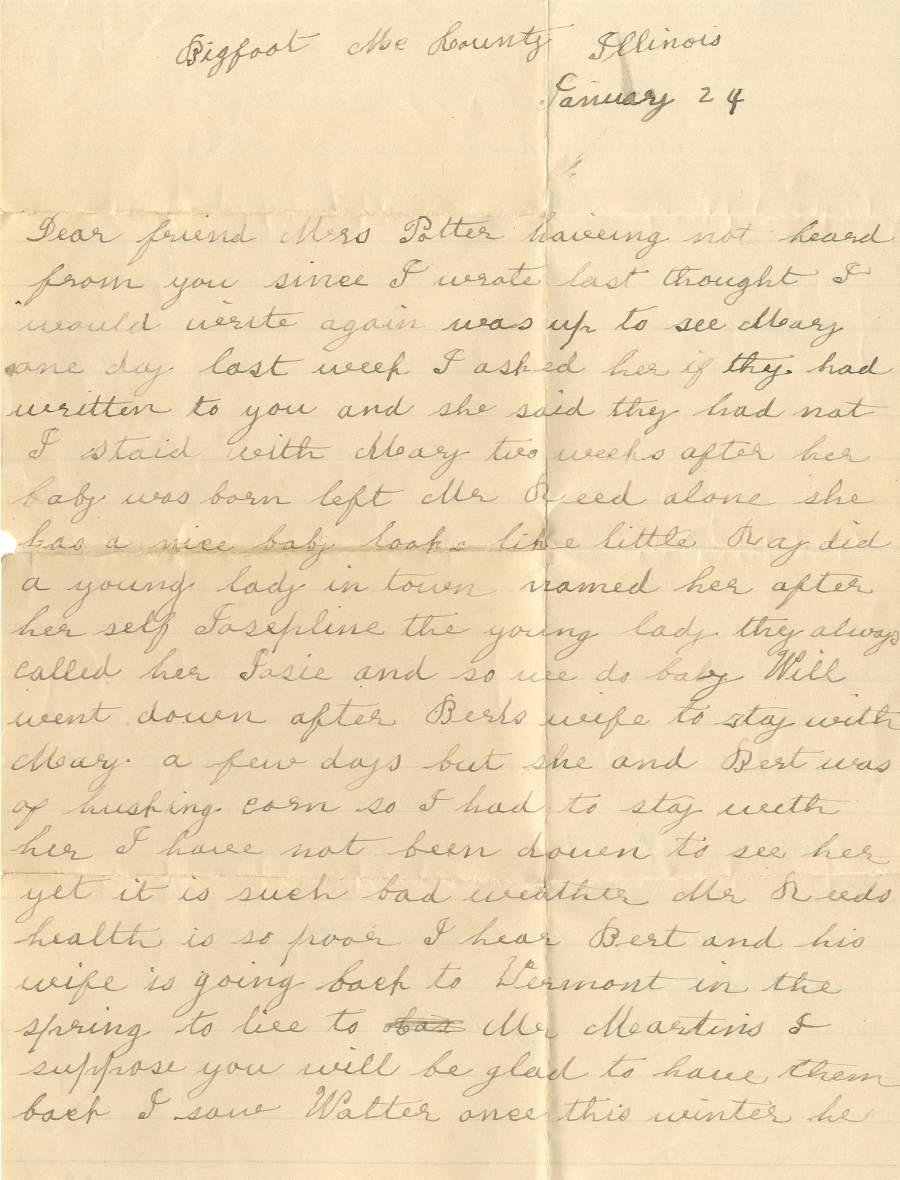 Bigfoot Mc County Illinois
January 24
Dear friend Mrs Potter haveing not heard
from you since I wrote last thought I
would write again was up to see Mary
one day last week I asked her if thy had
written to you and she said they had not
I staid with Mary two weeks after her
baby was born left Mr Reed alone she
has a nice baby looks like little Ray did
a young lady in town named her after
her self Josepline the young lady they always
called her Josie and so we do baby Will
went down after Berts wife to stay with
Mary a few days but she and Bert was
of husking corn so I had to stay with
her I have not been down to see her
yet it is such bad weather Mr Reeds
health is so poor I hear Bert and his
wife is going back to Vermont in the
spring to live to Mr Martins I
suppose you will be glad to have them
back I saw Walter once this winter he